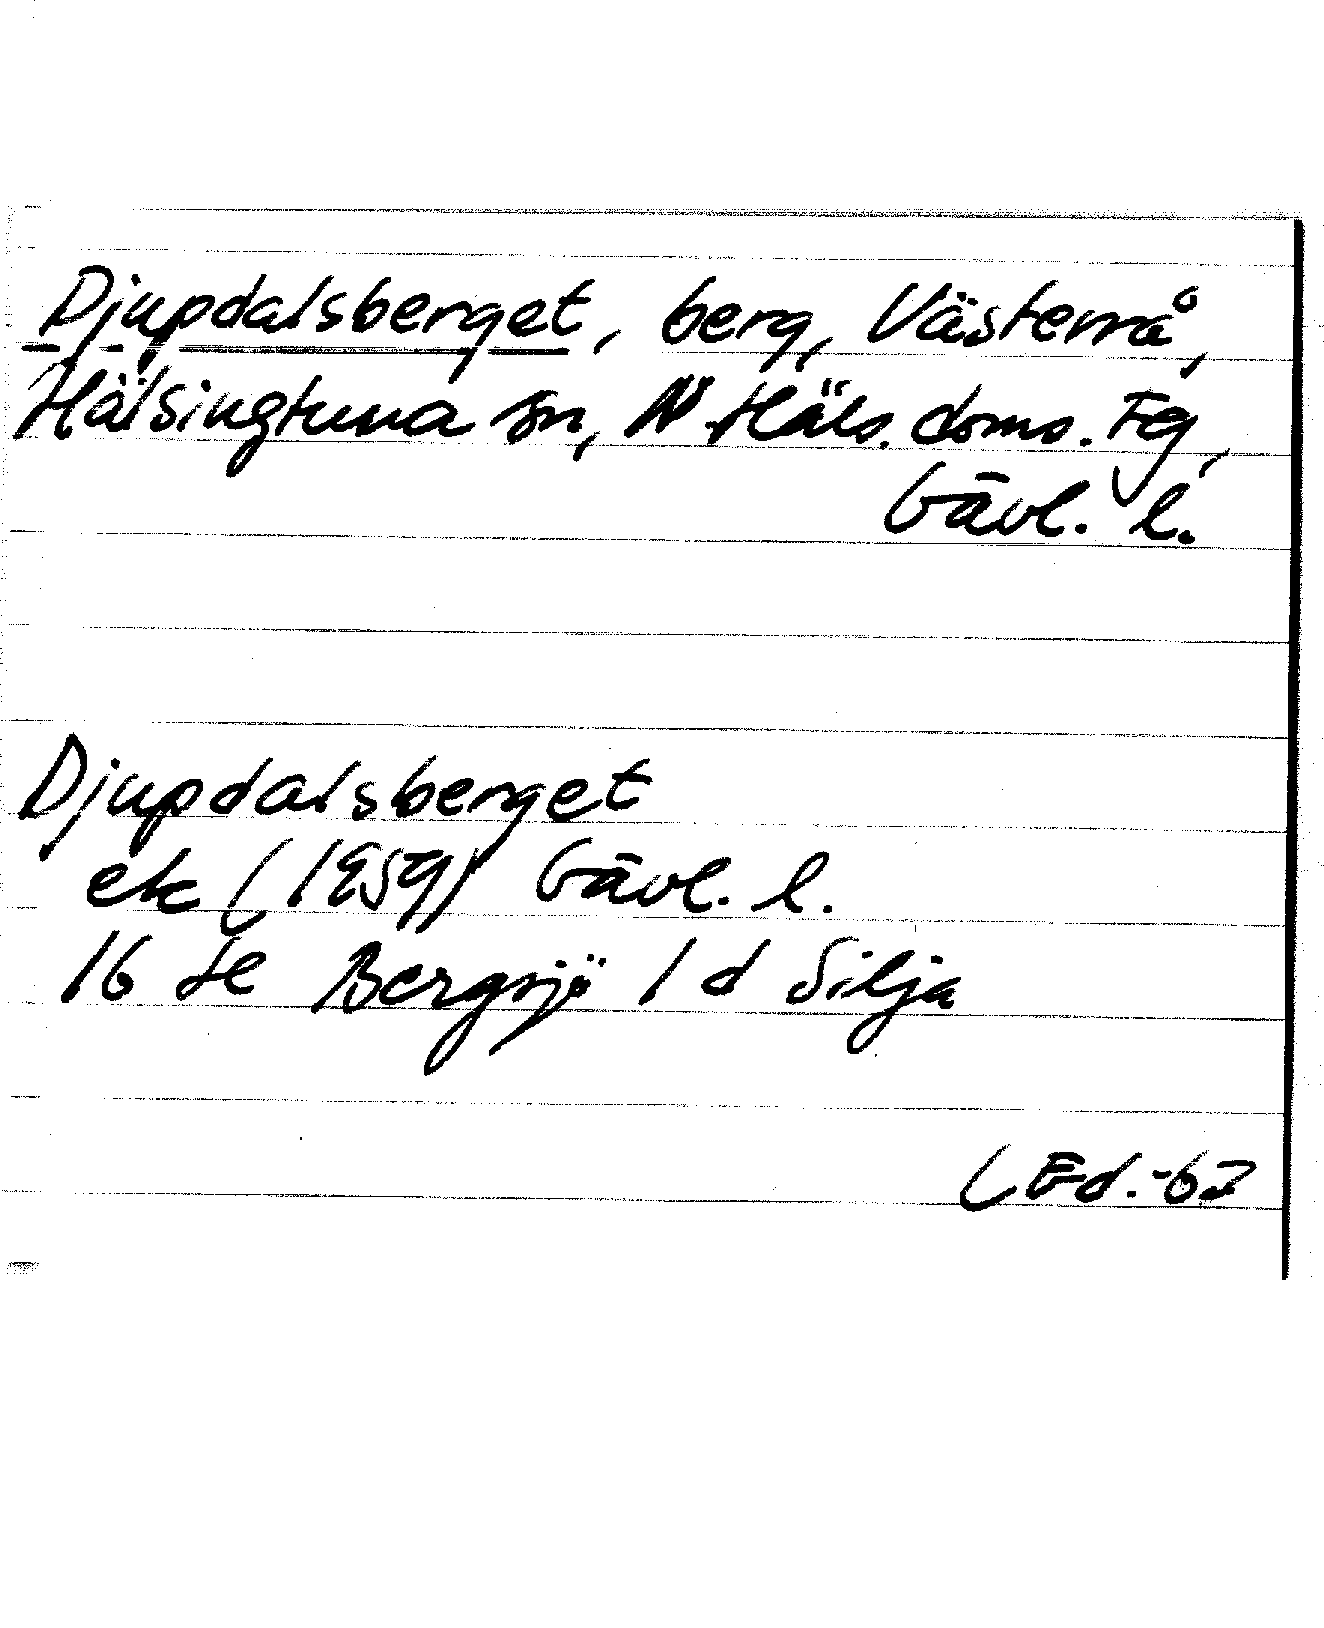 Djupdalsberget, berg, Västerrå,
Hälsingtuna sn, N Häls. doms. Fg,
Gävl. l.
Djupdalsberget
ek (1959) Gävl. l.
16 Bergsjö 1 d Silja
Ed.-62